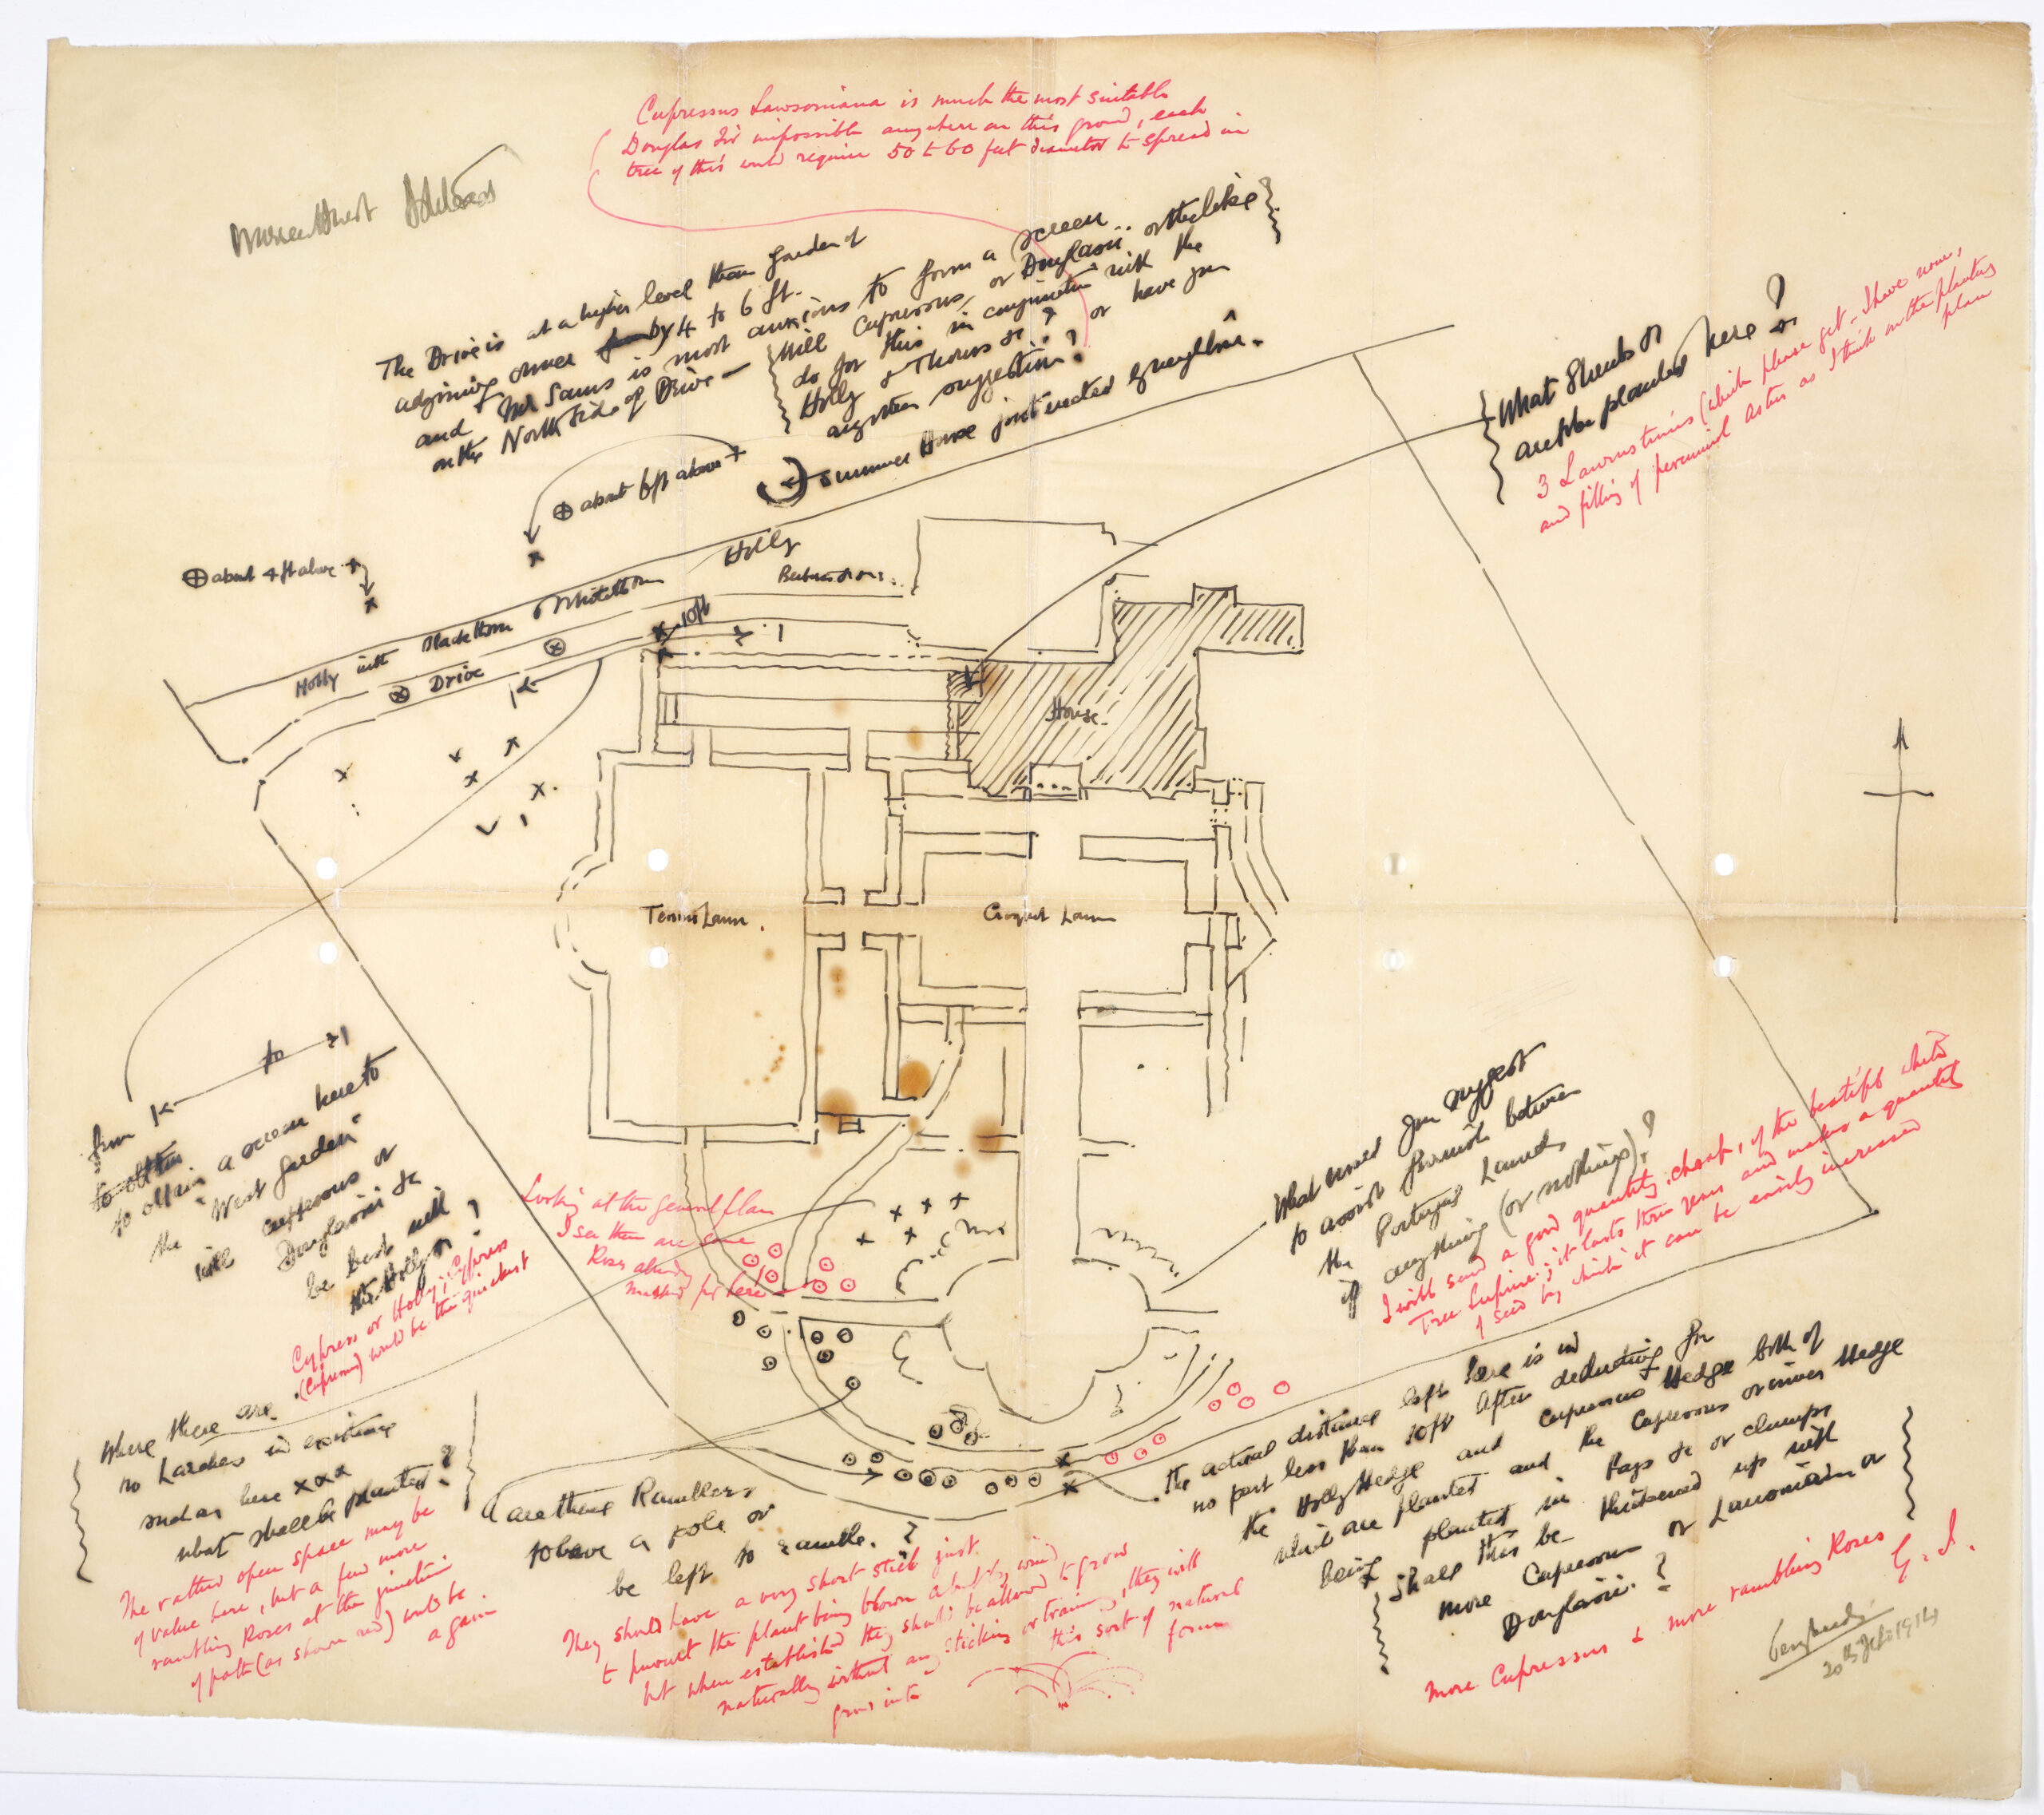 Cupressus Lawsoniana is much the most suitable
Douglas Fir impossible anywhere on this ground, each
tree of this would require 50 to 60 feet diameter to spread in
The Drive is at a higher level than garden of
adjoining owner by 4 to 6 ft.
and Mr Sams is most anxious to form a screen
on the North side of Drive —
Will Cupressus, or Douglasii or the like
do for this in conjunction with the
Holly & Thorns &c? or have you
any other suggestion?
Summer House just erected by neighbour.
⊕ about 6ft above
⊕ about 4 ft above
What Shrubs or
are to be planted here?
3 Laurustinus (which please get - I have none,
and filling of perennial Asters as I think on the planting
plan
Holly
Holly with Blackthorn & Whitethorn
10ft
Drive
House.
Tennis Lawn.
Croquet Lawn
from
to
to obtain a screen here to
the "West Garden"
will cuppressus or
Douglasii &c
be best with
the Holly &c?
Cypress or Holly; Cypress
(Cupressus) would be the quickest
Looking at the general plan
I see there are some
Roses already
marked for here
What would you suggest
to assist furnish between
the Portugal Laurels
if anything (or nothing)?
I will send a good quantity, cheap, of the beautiful white
Tree Lupine; it lasts three years and makes a quantity
of seed by which it can be easily increased
Where there are
no Larches in existence
such as here x x x
what shall be planted?
The rather open space may be
of value here, but a few more
rambling Roses at the junction
of path (as shown red) would be
a gain
are these Ramblers
to have a pole or
be left to ramble.?
They should have a very short stick just
to prevent the plant being blown about by wind
but when established they should be allowed to grow
naturally without any sticking or training, they will
grow into this sort of natural
form
The actual distance left here is in
no part less than 10ft after deducting for
the Holly Hedge and Cupressus Hedge both of
which are planted and the Cupressus or inner Hedge
being planted in bays &c or clumps
Shall this be thickened up with
more Cupressus or Lawsoniana or
Douglasii.?
More Cupressus & more rambling Roses
G. J.
20th Feb 1914